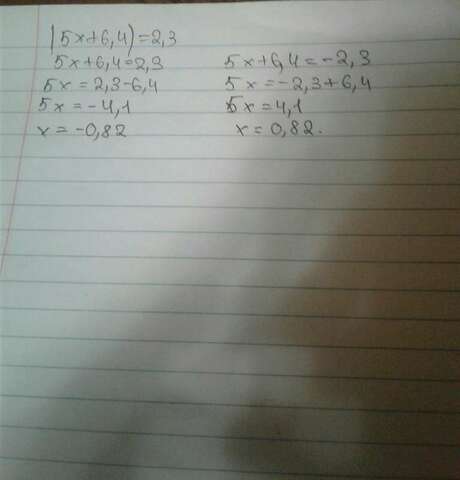 |5x+6,4)=2,3
5x+6,4=2,3
5x=2,3-6,4
5x=-4,1
x=-0,82
5x+6,4=-2,3
5x=-2,3+6,4
5x=4,1
x=0,82.